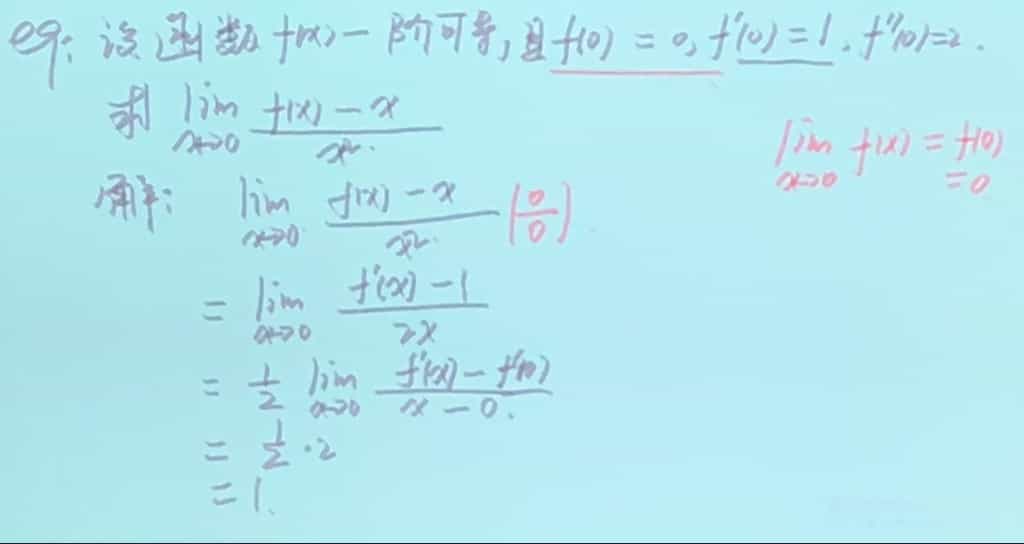 eg: 设函数 f(x) 一阶可导, 且 f(0) = 0, f'(0) = 1, f''(0)=2.
求 lim x→0 (f(x) - x)/x²
lim x→0 f(x) = f(0) = 0
解: lim x→0 (f(x) - x)/x² (0/0)
= lim x→0 (f'(x) - 1)/2x
= 1/2 lim x→0 (f'(x) - f'(0))/(x - 0)
= 1/2 · 2
= 1.